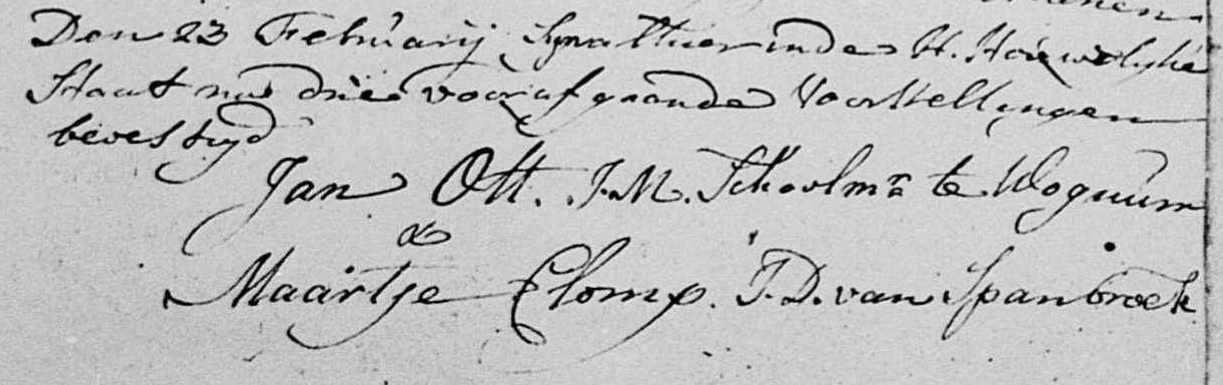 Den 23 Februarij Syn alhier in de H. Houwelyke
Staat na drie voorafgaande Voorstellingen
bevestigd
Jan Ott. J.M. Schoolmr te Wognum
&
Maartje Clomp. J.D. van Spanbroek